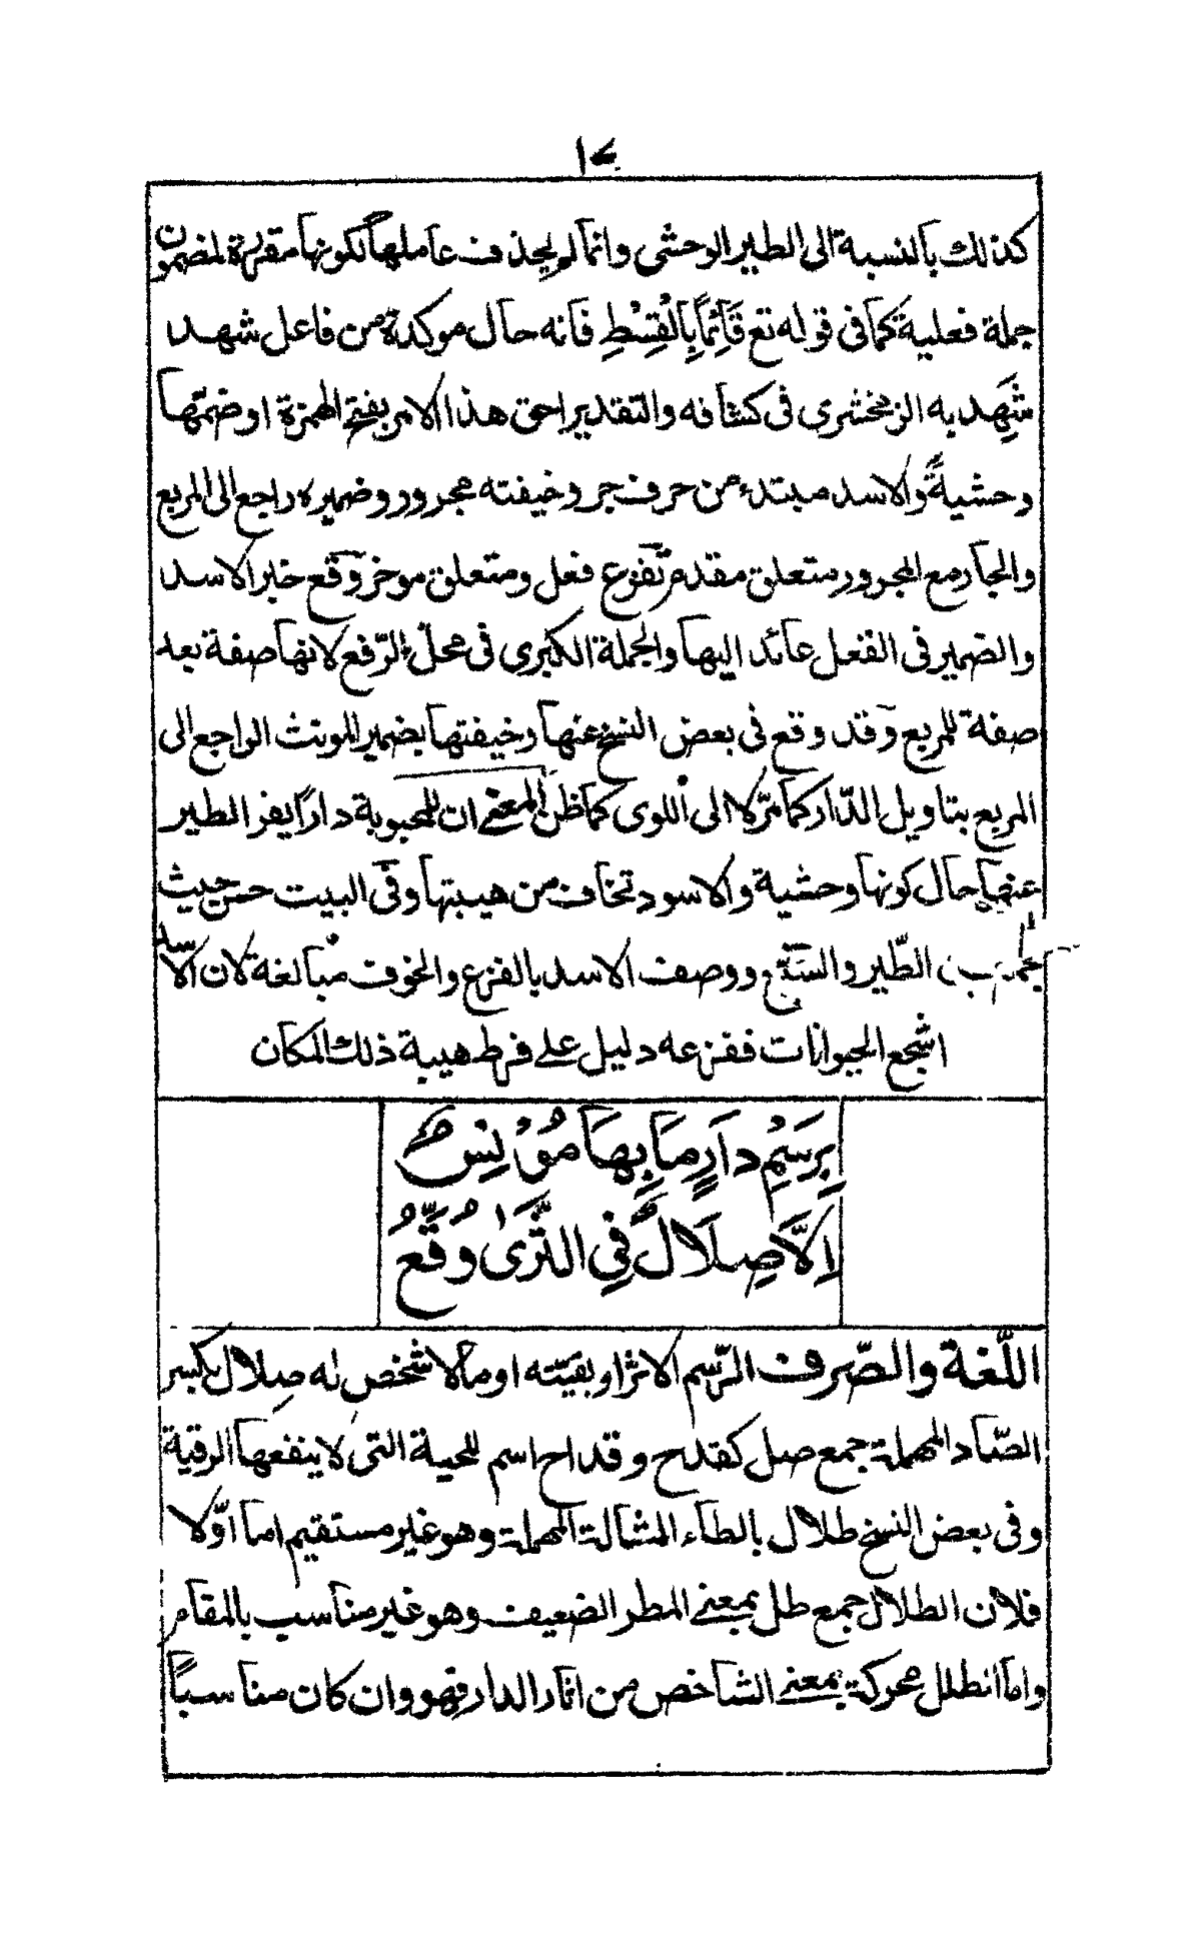 ١٧
كذلك بالنسبة الى الطير الوحشى وانما لم يحذف عاملها لكونها مقررة لمضمون
جملة فعلية كما فى قوله تع قَائِمًا بِالْقِسْطِ فانه حال موكدة من فاعل شهد
شَهِد به الزمخشرى فى كشافه والتقدير احق هذا الامر بفتح الهمزة او ضمّها
وحشيةً والاسد مبتدء من حرف جر وخيفته مجرور وضميره راجع الى المربع
والجار مع المجرور متعلق مقدم تفزع فعل ومتعلق موخر وقع خبر الاسد
والضمير فى الفعل عائد اليها والجملة الكبرى فى محل الرّفع لانها صفة بعد
صفة للمربع وقد وقع فى بعض النسخ عنها وخيفتها بضمير المونث الراجع الى
المربع بتاويل الدّار كما مرّ لا الى اللوى كما ظن المعنى ان للمحبوبة دارًا يفر الطير
عنها حال كونها وحشية والاسود تخاف من هيبتها وفى البيت حسن حيث
الطّير والسبع ووصف الاسد بالفزع والخوف مبالغة لان الاسد
اشجع الحيوانات ففزعه دليل على فرط هيبة ذلك المكان
بِرَسْمِ دَارٍ مَا بِهَا مُوْنِسٌ
اِلَّا صِلَالٌ فِي الثَّرَىٰ وُقَّعُ
اللّغة والصّرف الرّسم الاثر او بقيّته او ما لا شخص له صِلال بكسر
الصّاد المهملة جمع صل كقدح وقداح اسم للحية التى لا ينفعها الرقية
وفى بعض النسخ طلال بالطاء المشالة المهملة وهو غير مستقيم اما اوّلا
فلان الطلال جمع طل بمعنى المطر الضعيف وهو غير مناسب بالمقام
واما الطلل محركة بمعنى الشاخص من اثار الدار فهو وان كان مناسبًا